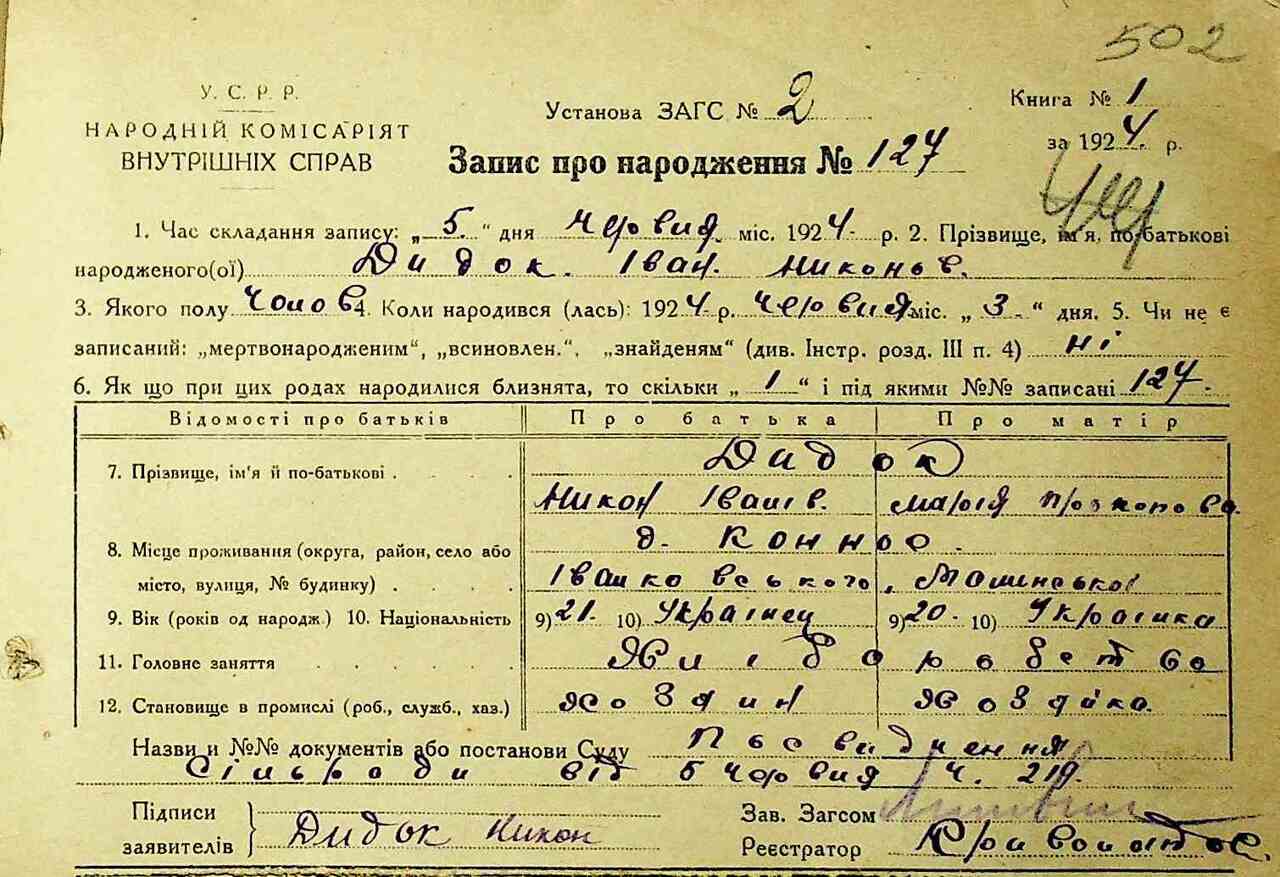 502
У. С. Р. Р.
НАРОДНІЙ КОМІСАРІЯТ
ВНУТРІШНІХ СПРАВ
Установа ЗАГС № 2
Книга № 1
за 1924 р.
Запис про народження № 127
1. Час складання запису: „ 5. “ дня червня міс. 1924 р. 2. Прізвище, ім'я, по-батькові
народженого(ої) Дидок. Іван. Никонов.
3. Якого полу Чолов 4. Коли народився (лась): 1924 р. червня міс. „ 3. “ дня. 5. Чи не є
записаний: „мертвонародженим“, „всиновлен.“, „знайденям“ (див. Інстр. розд. III п. 4) ні
6. Як що при цих родах народилися близнята, то скільки „ 1 “ і під якими №№ записані 127.
Відомості про батьків Про батька Про матір
7. Прізвище, ім'я й по-батькові . . . . Дидок
Никон Іванів. Марія Прокопова.
8. Місце проживання (округа, район, село або д. Конное.
місто, вулиця, № будинку) . . . .
9. Вік (років од народж.) 10. Національність 9) 21. 10) Українец 9) 20. 10) Українка
11. Головне заняття . . . . . Хліборобство
12. Становище в промислі (роб., служб., хаз.) Хозяин Хозяйка.
Назви и №№ документів або постанови Суду Посвидчення
Сільради від 5 червня ч. 219.
Підписи
заявителів Дидок Никон
Зав. Загсом
Реєстратор